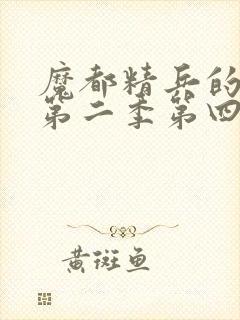 魔都精兵的
第二季第四
黄斑鱼